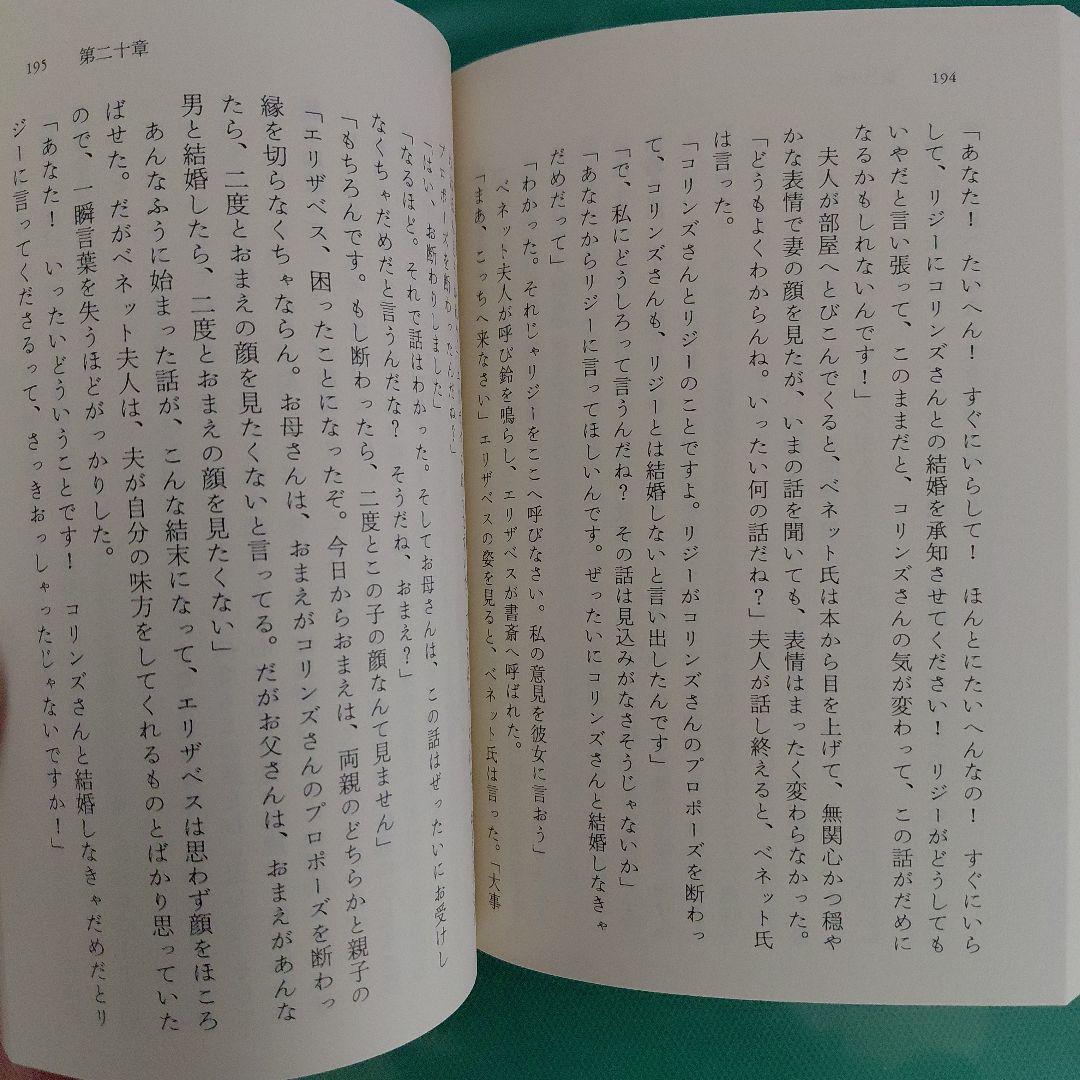 194
「あなた！　たいへん！　すぐにいらして！　ほんとにたいへんなの！　すぐにいら
して、リジーにコリンズさんとの結婚を承知させてください！　リジーがどうしても
いやだと言い張って、このままだと、コリンズさんの気が変わって、この話がだめに
なるかもしれないんです！」
夫人が部屋へとびこんでくると、ベネット氏は本から目を上げて、無関心かつ穏や
かな表情で妻の顔を見たが、いまの話を聞いても、表情はまったく変わらなかった。
「どうもよくわからんね。いったい何の話だね？」夫人が話し終えると、ベネット氏
は言った。
「コリンズさんとリジーのことですよ。リジーがコリンズさんのプロポーズを断わっ
て、コリンズさんも、リジーとは結婚しないと言い出したんです」
「で、私にどうしろって言うんだね？　その話は見込みがなさそうじゃないか」
「あなたからリジーに言ってほしいんです。ぜったいにコリンズさんと結婚しなきゃ
だめだって」
「わかった。それじゃリジーをここへ呼びなさい。私の意見を彼女に言おう」
ベネット夫人が呼び鈴を鳴らし、エリザベスが書斎へ呼ばれた。
「まあ、こっちへ来なさい」エリザベスの姿を見ると、ベネット氏は言った。「大事
195　第二十章
プロポーズを断わったんだね？」
「はい、お断わりしました」
「なるほど。それで話はわかった。そしてお母さんは、この話はぜったいにお受けし
なくちゃだめだと言うんだな？　そうだね、おまえ？」
「もちろんです。もし断わったら、二度とこの子の顔なんて見ません」
「エリザベス、困ったことになったぞ。今日からおまえは、両親のどちらかと親子の
縁を切らなくちゃならん。お母さんは、おまえがコリンズさんのプロポーズを断わっ
たら、二度とおまえの顔を見たくないと言ってる。だがお父さんは、おまえがあんな
男と結婚したら、二度とおまえの顔を見たくない」
あんなふうに始まった話が、こんな結末になって、エリザベスは思わず顔をほころ
ばせた。だがベネット夫人は、夫が自分の味方をしてくれるものとばかり思っていた
ので、一瞬言葉を失うほどがっかりした。
「あなた！　いったいどういうことです！　コリンズさんと結婚しなきゃだめだとリ
ジーに言ってくださるって、さっきおっしゃったじゃないですか！」